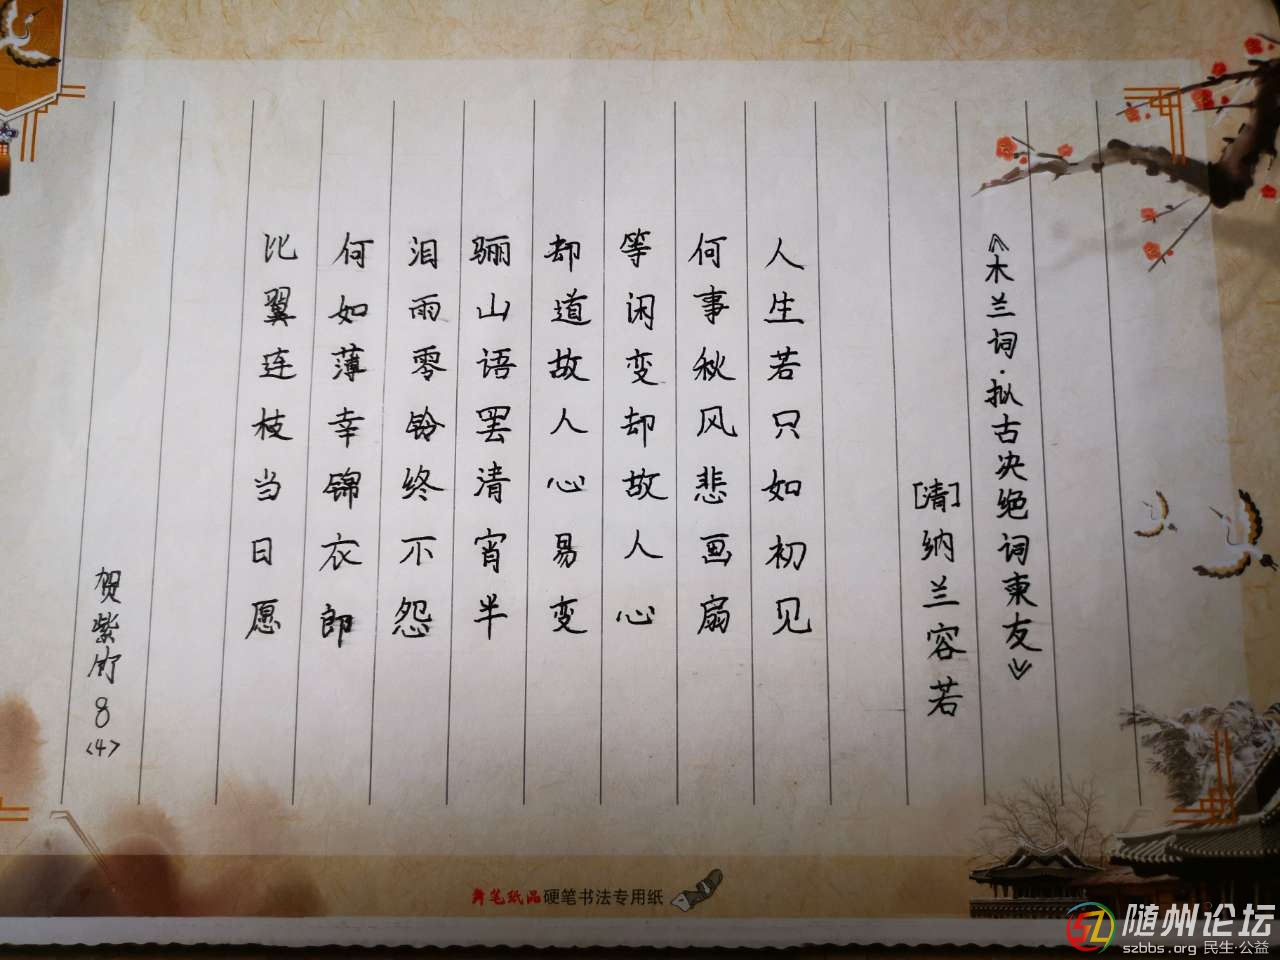 《木兰词·拟古决绝词柬友》
[清]纳兰容若
人生若只如初见
何事秋风悲画扇
等闲变却故人心
却道故人心易变
骊山语罢清宵半
泪雨零铃终不怨
何如薄幸锦衣郎
比翼连枝当日愿
贺紫竹8<4>
笔纸品硬笔书法专用纸
随州论坛
szbbs.org 民生·公益